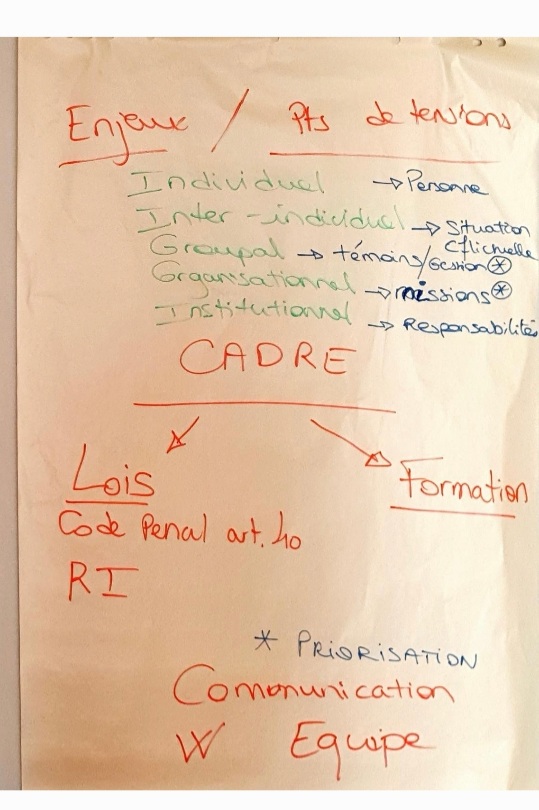 Enjeux / Pts de tensions
Individuel → Personne
Inter-individuel → Situation Cflictuelle
Groupal → témoins/Gestion *
Organisationnel → missions *
Institutionnel → Responsabilités
CADRE
Lois
Formation
Code Penal art. 40
RI
* PRIORISATION
Communication
W Equipe